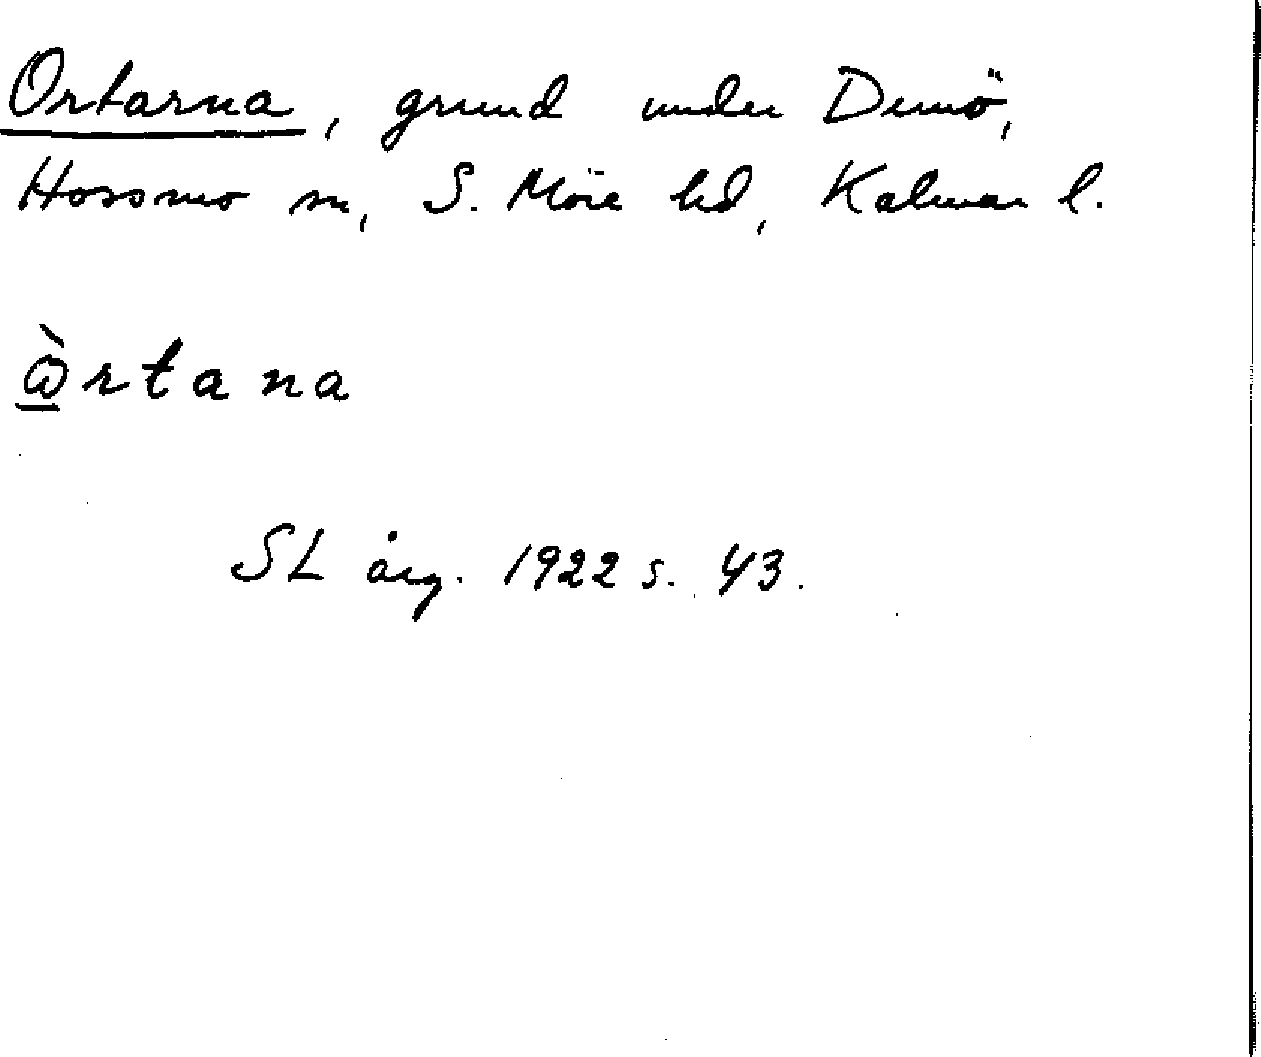 Ortarna, grund under Dunö,
Hossmo sn, S. Möre hd, Kalmar l.
ὼ̲rtana
SL årg. 1922 s. 43.